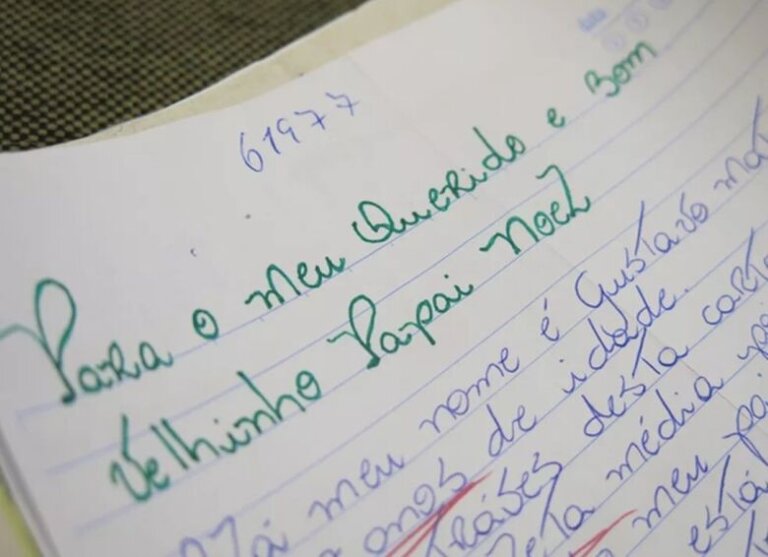 61977
Para o meu Querido e Bom
Velhinho Papai Noel
meu nome é Gustavo
anos de idade.
desta carta
média
meu
está